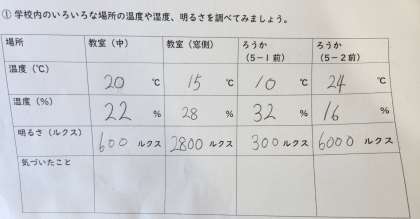 ① 学校内のいろいろな場所の温度や湿度、明るさを調べてみましょう。
場所 教室（中） 教室（窓側） ろうか（5－1前） ろうか（5－2前）
温度（℃） 20 ℃ 15 ℃ 10 ℃ 24 ℃
湿度（％） 22 ％ 28 ％ 32 ％ 16 ％
明るさ（ルクス） 600 ルクス 2800 ルクス 300 ルクス 6000 ルクス
気づいたこと